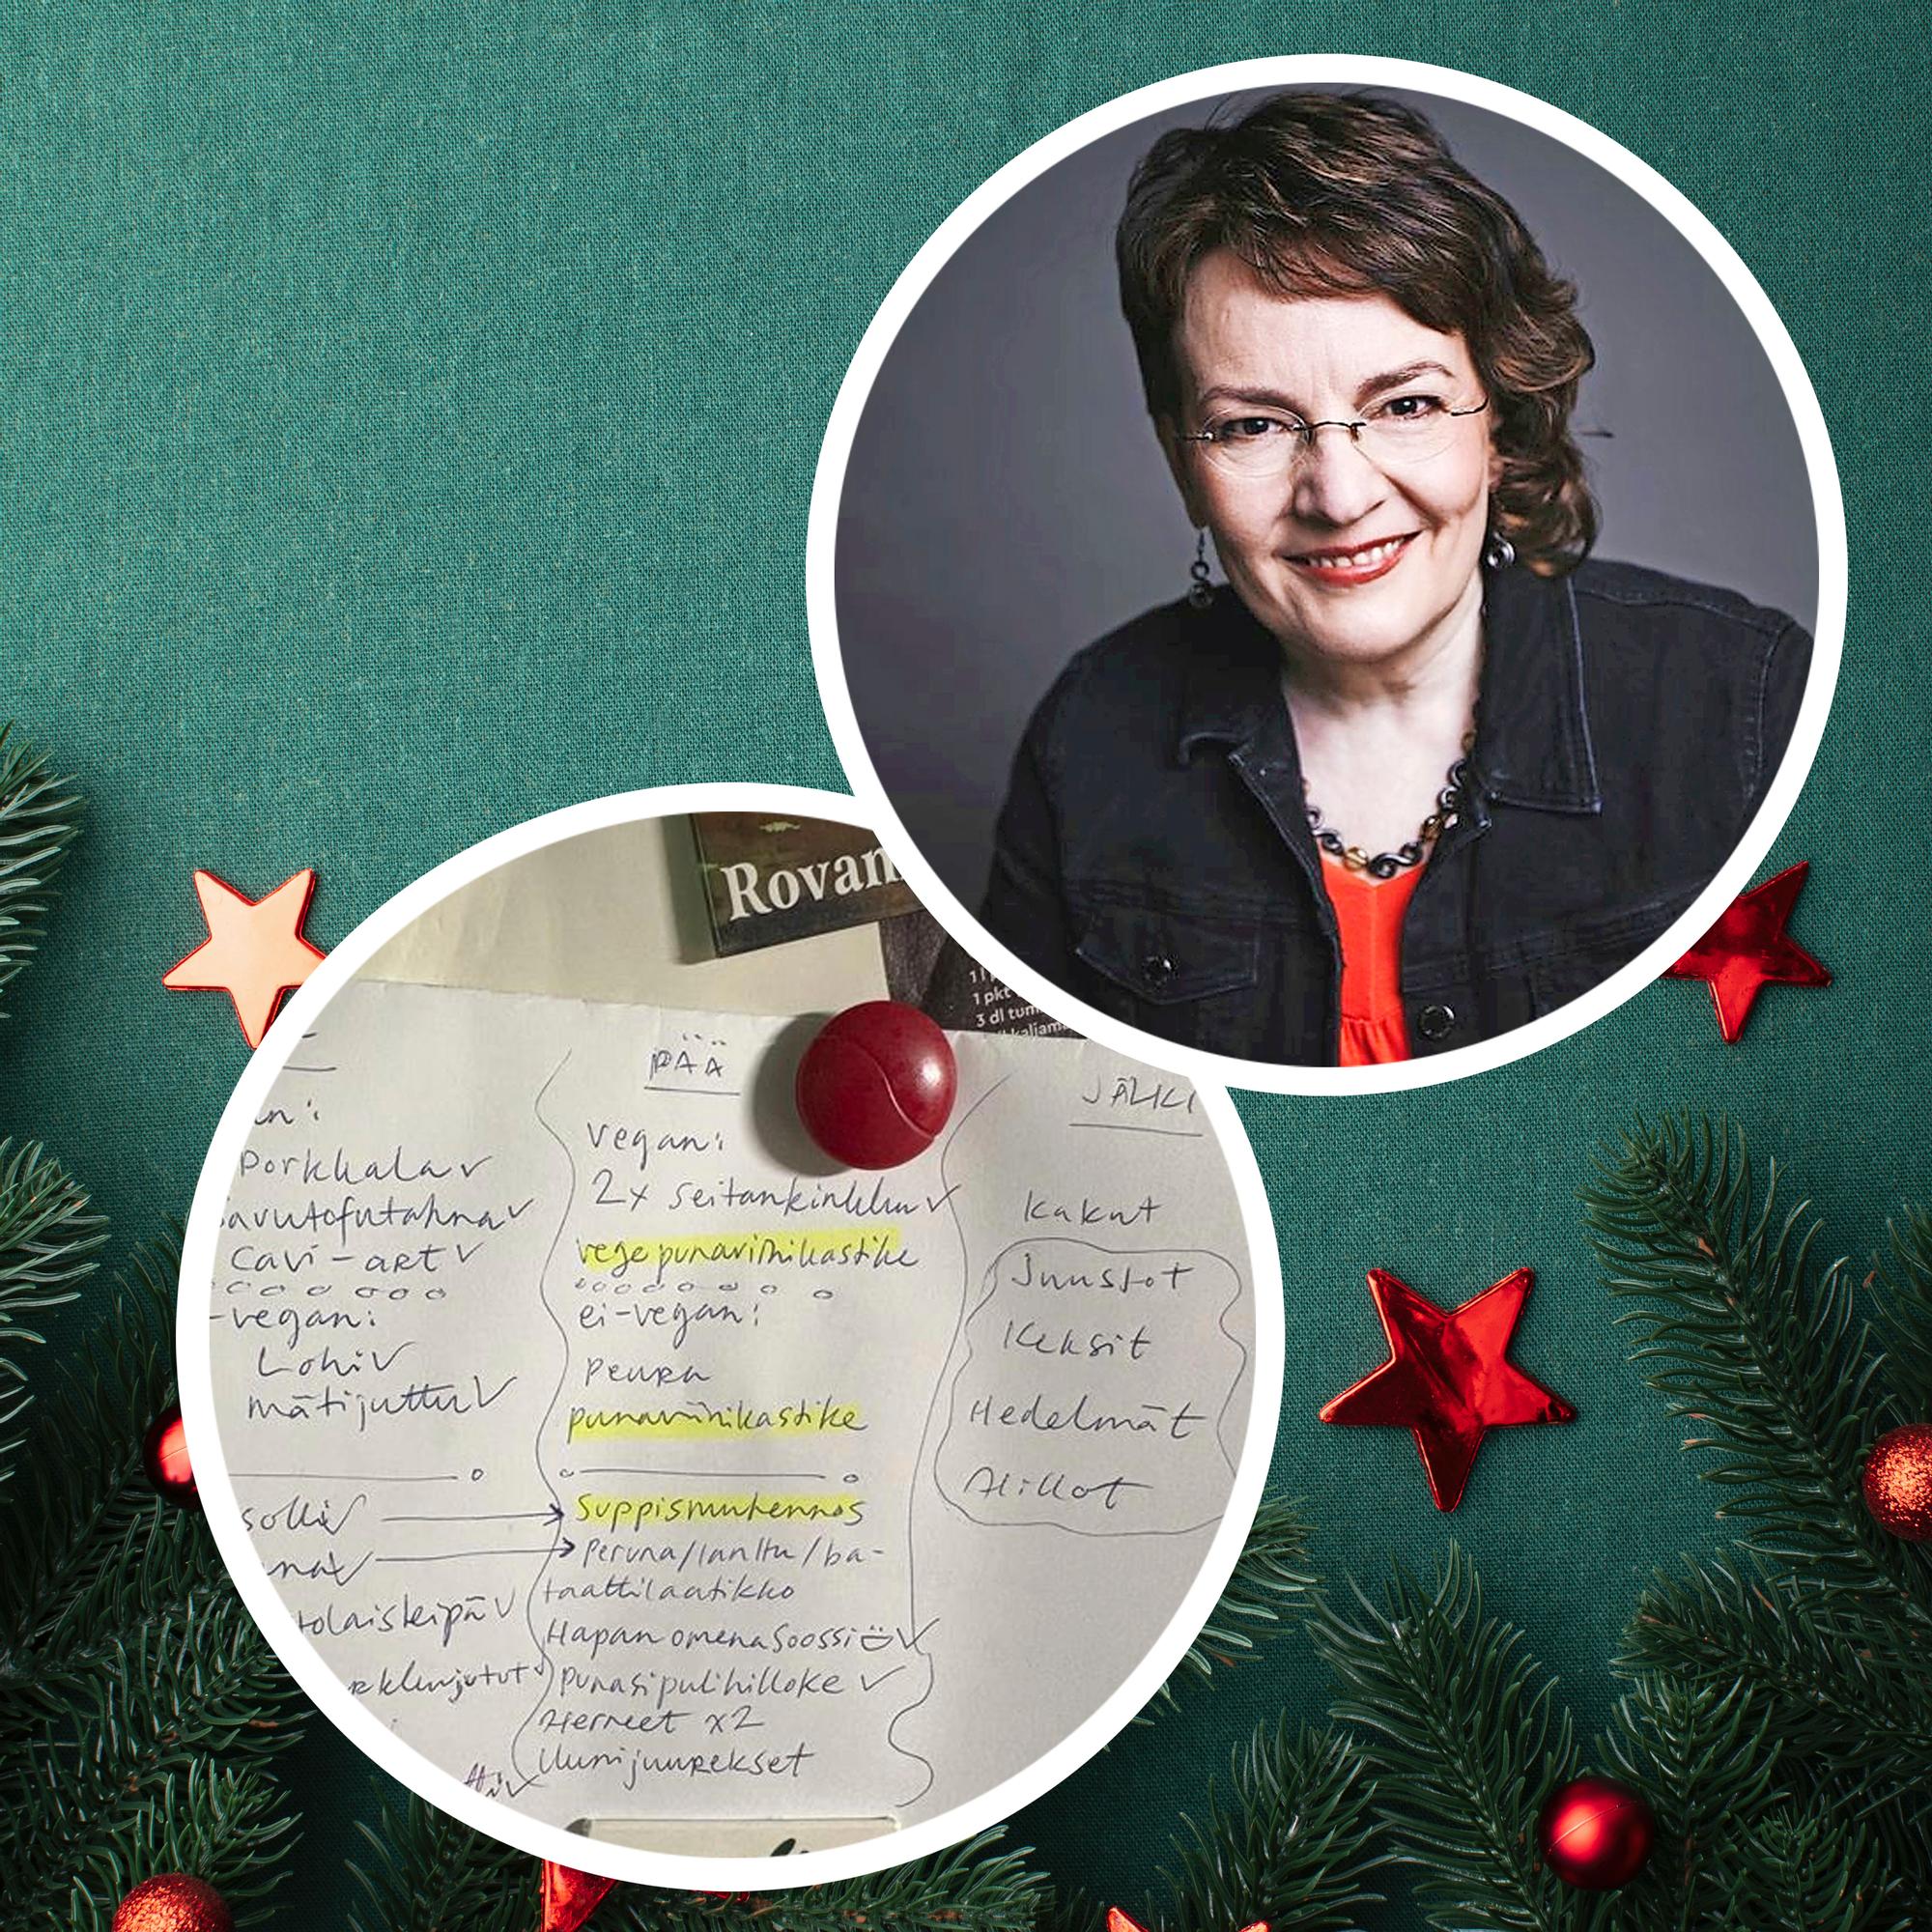 Rovan
1 l
1 pkt
3 dl tum
kaljama
an:
Porkkala ✓
avutofutahna ✓
Cavi-art ✓
-vegan:
Lohi ✓
mätijuttu ✓
solli ✓
una ✓
tolaisleipä ✓
rkkujutut ✓
PÄÄ
Vegan:
2x seitankinkku ✓
vege punaviinikastike
ei-vegan:
Peura
punaviinikastike
Suppismuhennos
Peruna/lanttu/ba-
taattilaatikko
Hapan omenasoossi ✓
Punasipulihilloke ✓
Herneet x2
Uunijuurekset
JÄLKI
Kakut
Juustot
Keksit
Hedelmät
Hillot